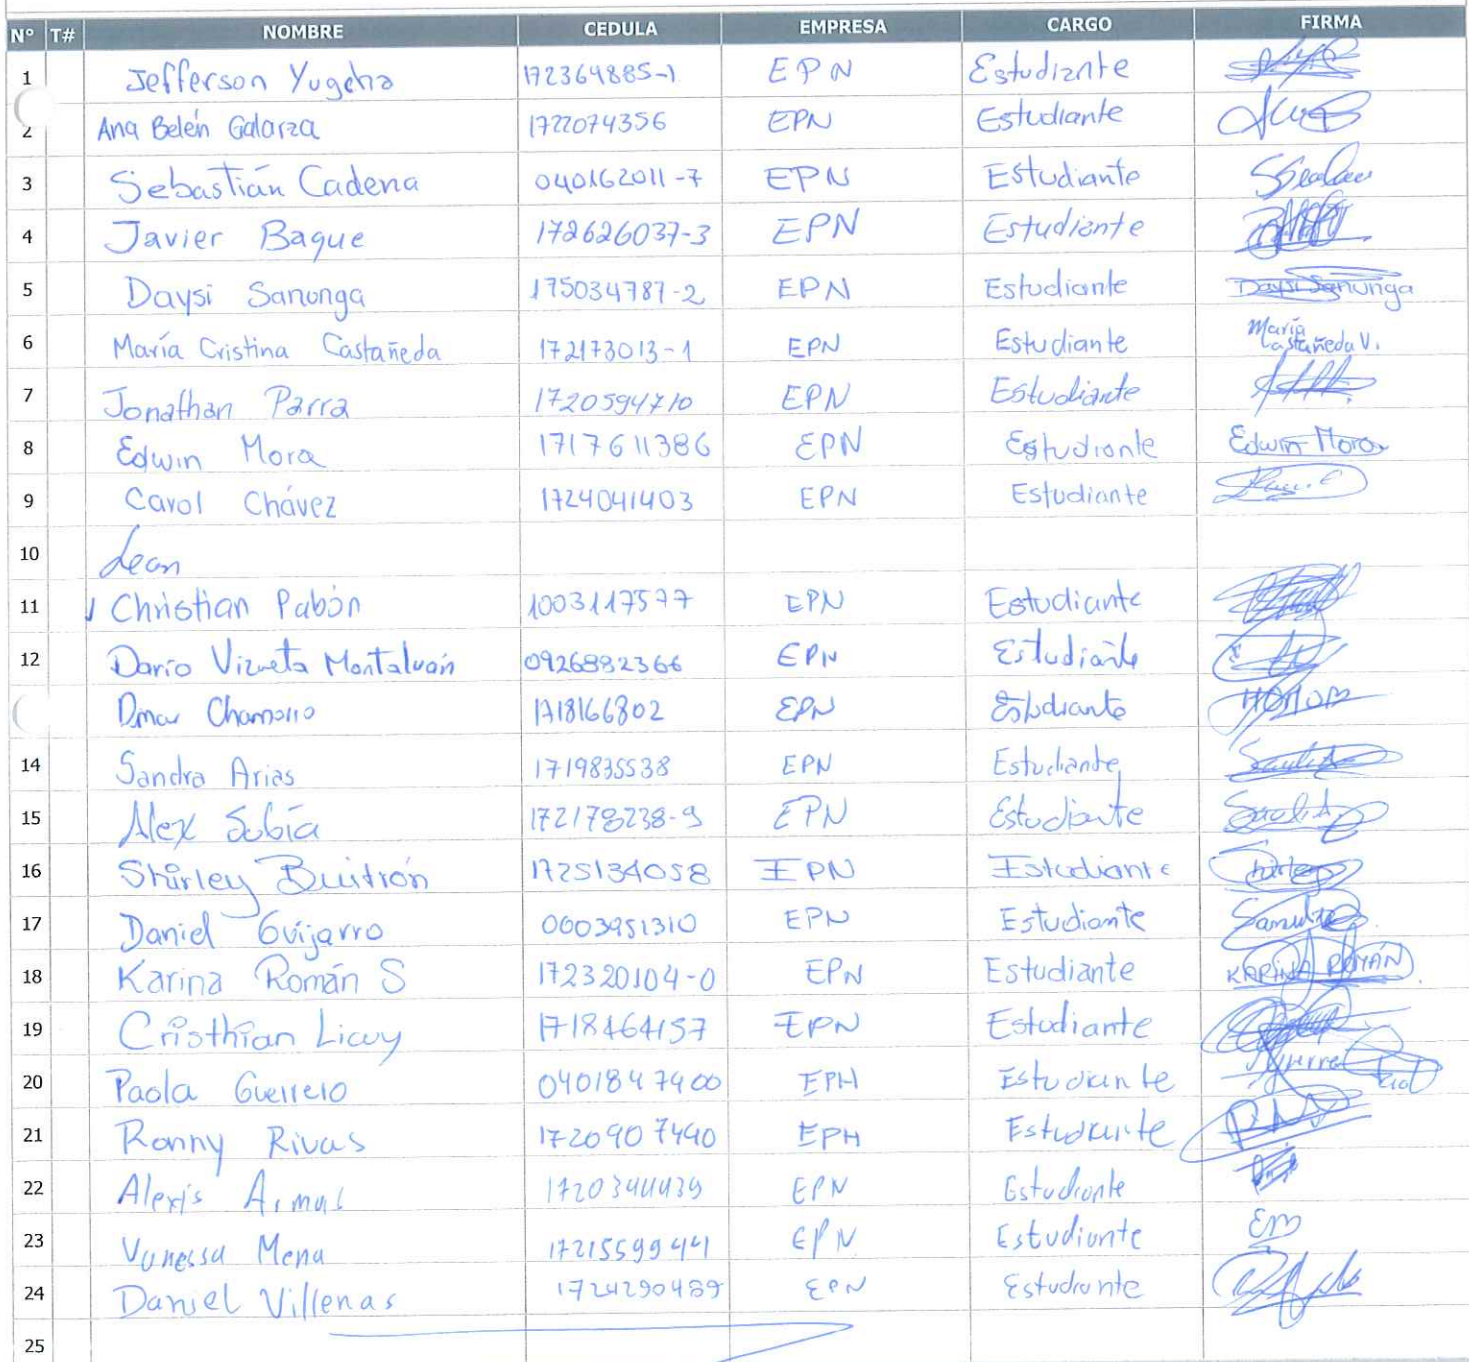 N° T# NOMBRE CEDULA EMPRESA CARGO FIRMA
1 Jefferson Yugcha 172364885-1 EPN Estudiante
2 Ana Belén Galarza 1722074356 EPN Estudiante
3 Sebastián Cadena 040162011-7 EPN Estudiante
4 Javier Baque 172626037-3 EPN Estudiante
5 Daysi Sanunga 175034787-2 EPN Estudiante Daysi Sanunga
6 María Cristina Castañeda 172173013-1 EPN Estudiante María Castañeda V.
7 Jonathan Parra 1720594710 EPN Estudiante
8 Edwin Mora 1717611386 EPN Estudiante Edwin Mora
9 Carol Chávez 1724041403 EPN Estudiante
10 Lean
11 Christian Pabón 1003117577 EPN Estudiante
12 Dario Vizueta Montalván 0926892366 EPN Estudiante
Chamorro 1718166802 EPN Estudiante
14 Sandra Arias 1719835538 EPN Estudiante
15 Alex Subía 172178238-9 EPN Estudiante
16 Shirley Buitrón 1725134058 EPN Estudiante
17 Daniel Guijarro 0603951310 EPN Estudiante
18 Karina Román S 172320104-0 EPN Estudiante KARINA ROMÁN
19 Cristhian Licuy 1718464157 EPN Estudiante
20 Paola Guerrero 0401847400 EPN Estudiante
21 Ronny Rivas 1720907440 EPN Estudiante
22 Alexis Armas 1720344439 EPN Estudiante
23 Vanessa Mena 1721559941 EPN Estudiante
24 Daniel Villenas 1724290489 EPN Estudiante
25